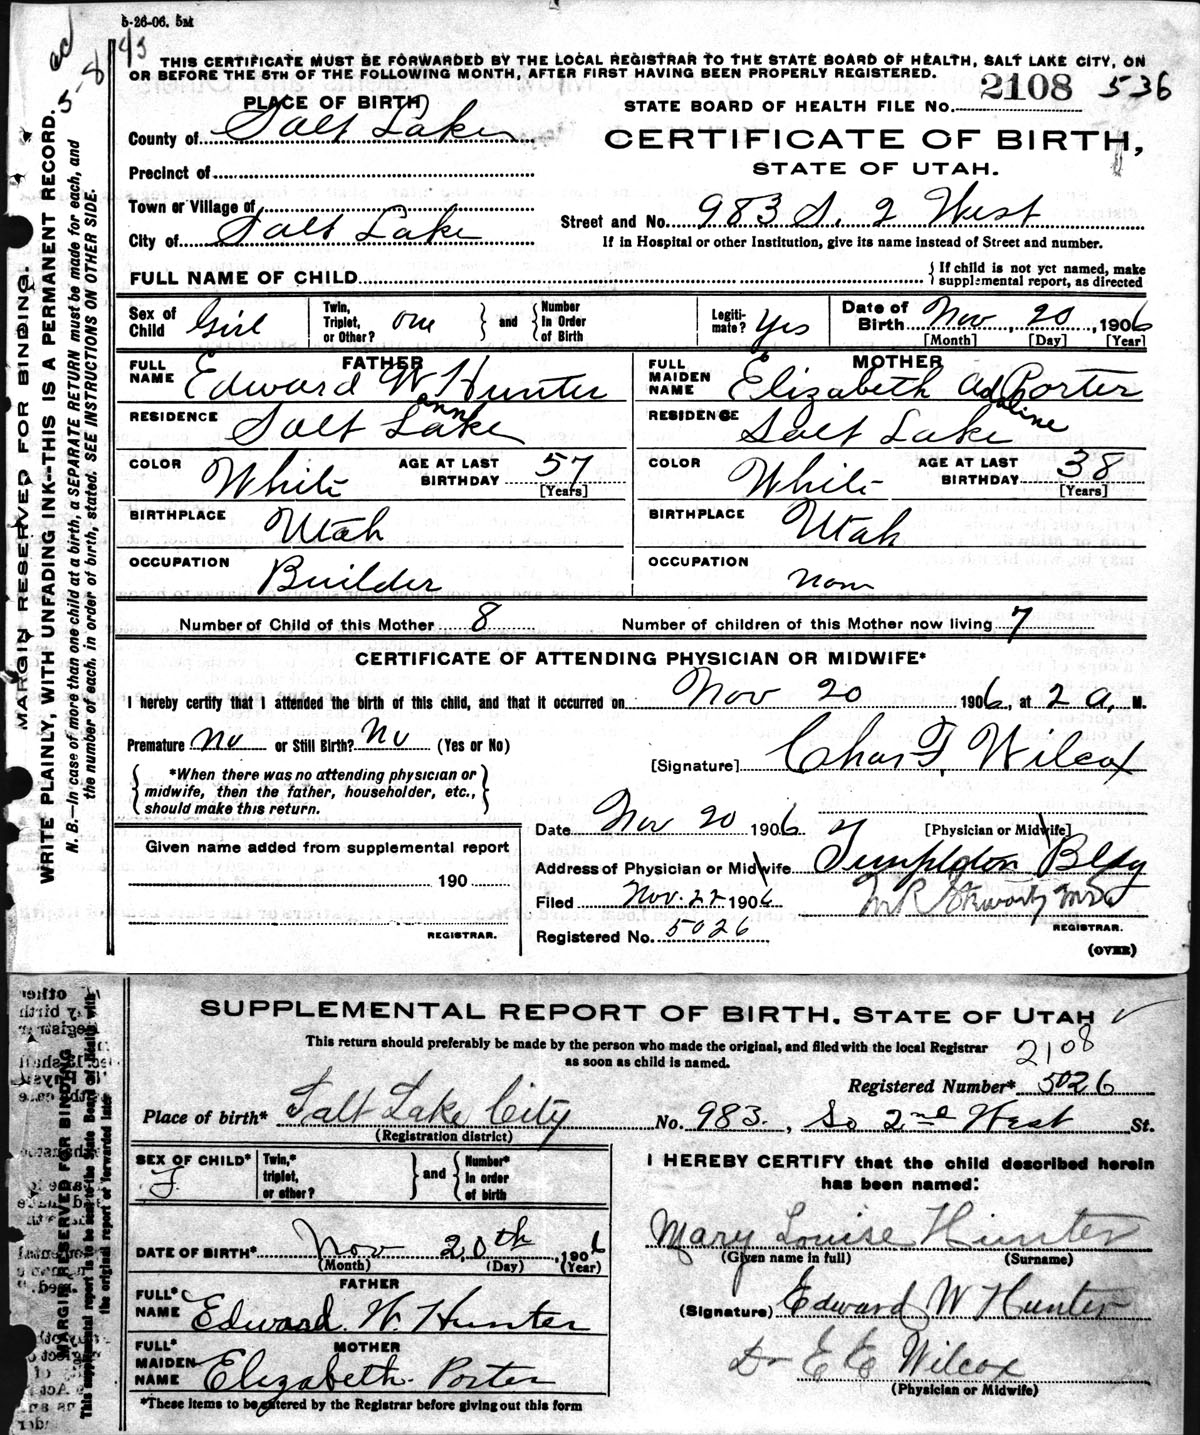 5-26-06. 5M
93
THIS CERTIFICATE MUST BE FORWARDED BY THE LOCAL REGISTRAR TO THE STATE BOARD OF HEALTH, SALT LAKE CITY, ON
OR BEFORE THE 5TH OF THE FOLLOWING MONTH, AFTER FIRST HAVING BEEN PROPERLY REGISTERED.
PLACE OF BIRTH
STATE BOARD OF HEALTH FILE NO. 2108 536
County of Salt Lake
CERTIFICATE OF BIRTH,
STATE OF UTAH.
Precinct of
Town or Village of
Street and No. 983 S. 2 West
City of Salt Lake
If in Hospital or other Institution, give its name instead of Street and number.
FULL NAME OF CHILD
{ If child is not yet named, make
supplemental report, as directed
Sex of Child Girl
Twin, Triplet, or Other? one } and { Number In Order of Birth
Legiti-mate? Yes
Date of Birth Nov, 20, 1906
[Month] [Day] [Year]
FATHER
FULL NAME Edward W Hunter
ann
RESIDENCE Salt Lake
COLOR White AGE AT LAST BIRTHDAY 57
[Years]
BIRTHPLACE Utah
OCCUPATION Builder
MOTHER
FULL MAIDEN NAME Elizabeth Ad Porter
adaline
RESIDENCE Salt Lake
COLOR White AGE AT LAST BIRTHDAY 38
[Years]
BIRTHPLACE Utah
OCCUPATION
Number of Child of this Mother 8 Number of children of this Mother now living 7
CERTIFICATE OF ATTENDING PHYSICIAN OR MIDWIFE*
I hereby certify that I attended the birth of this child, and that it occurred on Nov 20 1906, at 2 a, M.
Premature no or Still Birth? No (Yes or No)
[Signature] Chas F, Wilcox
{ *When there was no attending physician or
midwife, then the father, householder, etc.,
should make this return. }
Date Nov 20 1906
[Physician or Midwife]
Given name added from supplemental report
190
REGISTRAR.
Address of Physician or Midwife Templeton Bldg
Filed Nov. 22 1906
REGISTRAR.
Registered No. 5026
(OVER)
MARGIN RESERVED FOR BINDING.
WRITE PLAINLY, WITH UNFADING INK--THIS IS A PERMANENT RECORD.
N. B.—In case of more than one child at a birth, a SEPARATE RETURN must be made for each, and
the number of each, in order of birth, stated. SEE INSTRUCTIONS ON OTHER SIDE.
5-8
SUPPLEMENTAL REPORT OF BIRTH, STATE OF UTAH
This return should preferably be made by the person who made the original, and filed with the local Registrar
as soon as child is named.
2108
Registered Number* 5026
Place of birth* Salt Lake City No. 983, So 2nd West St.
(Registration district)
SEX OF CHILD* F
Twin,* triplet, or other? } and { Number* In order of birth
DATE OF BIRTH* Nov 20th, 1906
(Month) (Day) (Year)
FATHER
FULL* NAME Edward W. Hunter
MOTHER
FULL* MAIDEN NAME Elizabeth Porter
*These items to be entered by the Registrar before giving out this form
I HEREBY CERTIFY that the child described herein
has been named:
Mary Louise Hunter
(Given name in full) (Surname)
(Signature) Edward W Hunter
Dr E E Wilcox
(Physician or Midwife)
MARGIN RESERVED FOR BINDING
This supplemental report is to be sent to the State Board of Health with
the original report or forwarded later